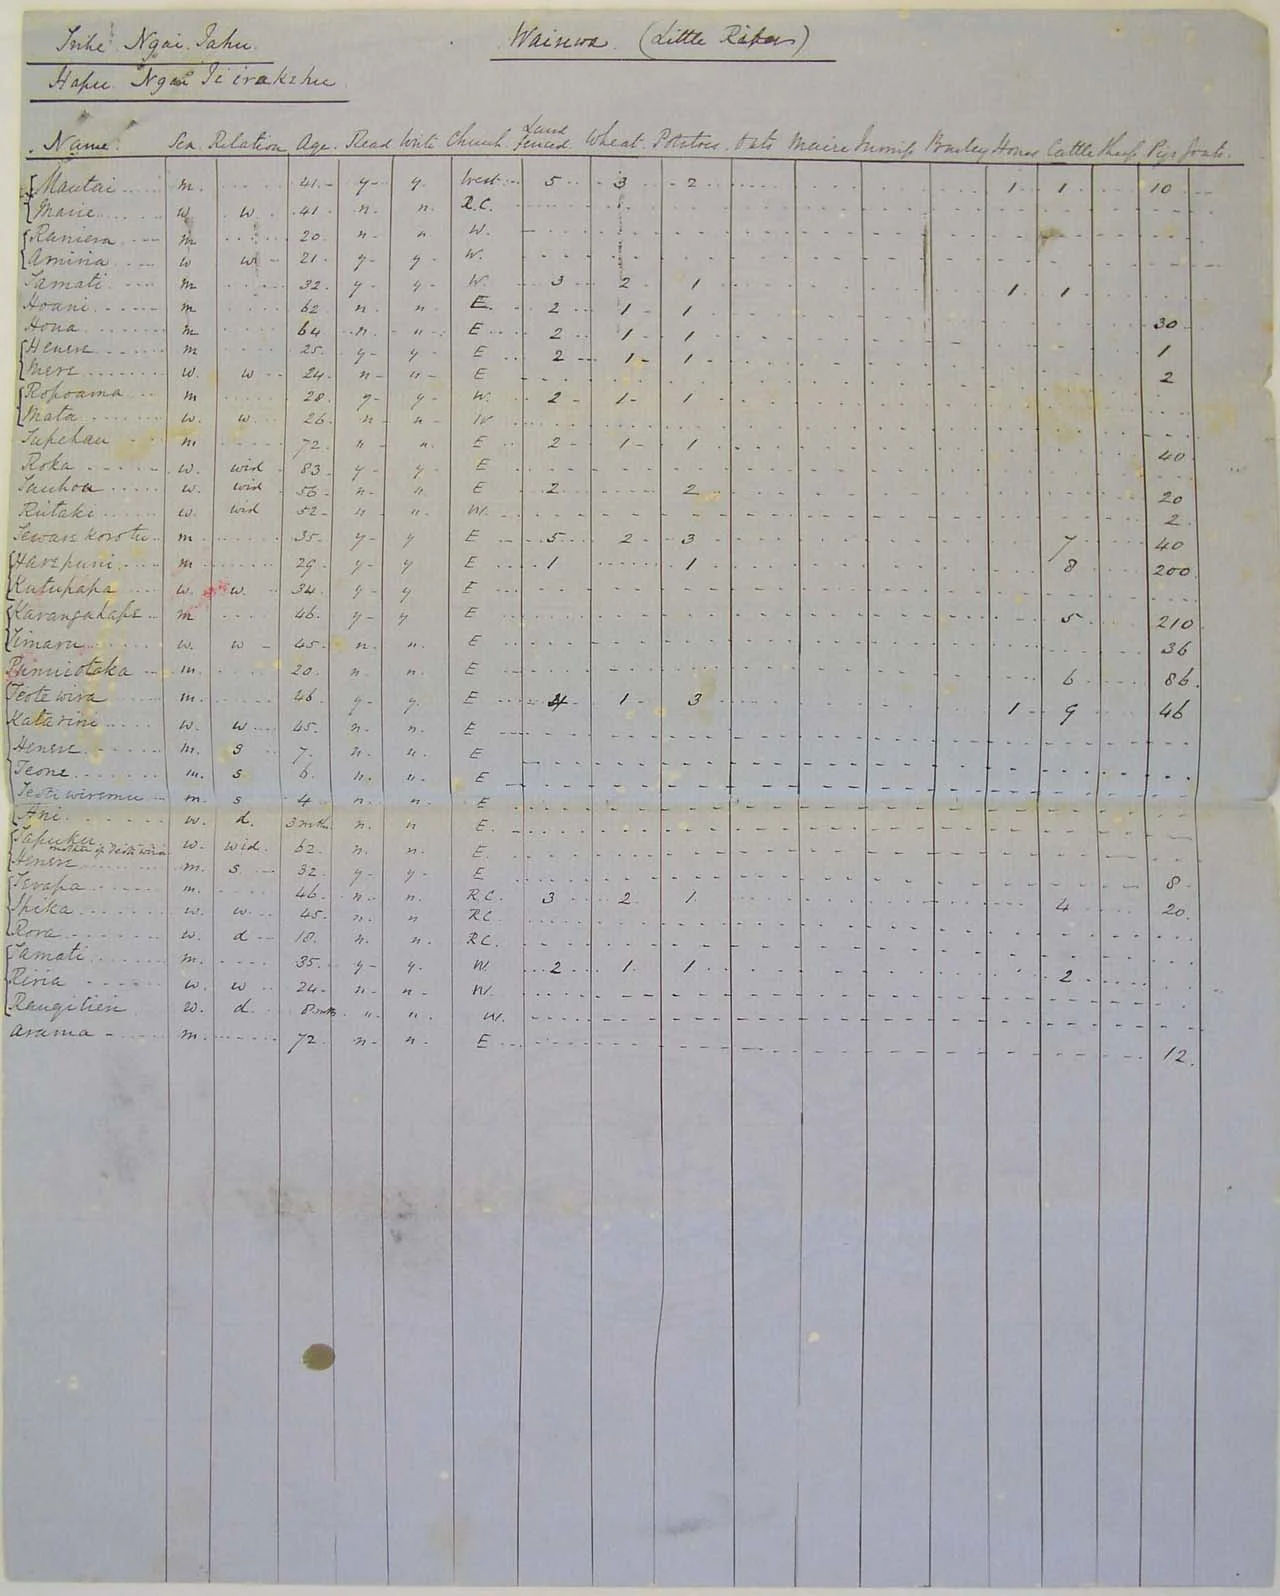 Tribe Ngai Tahu Wairewa (Little River)
Hapu Ngai Te irakehu
Name Sex Relation Age Read Write Church Land Fenced Wheat Potatoes Oats Maize Turnips Barley Horses Cattle Sheep Pigs Goats
Mautai m. 41 y y West 5 3 2 1 1 10
Marie w w 41 n n R.C.
Raniera m 20 n n W.
Amiria w w 21 y y W.
Tamati m 32 y y W. 3 2 1 1 1
Hoani m 62 n n E. 2 1 1
Hona m 64 n n E 2 1 1 30
Henere m 25 y y E 2 1 1 1
Mere w. w 24 n n E 2
Ropoama m 28 y y W. 2 1 1
Mata w. w 26 n n W
Tupehau m 72 n n. E 2 1 1 40
Roka w. wid 83 y y E
Tauhoa w. wid 56 n n E 2 2 20
Riitaki w. wid 52 n n W. 2
Tewarekorotu m 35 y y E 5 2 3 7 40
Harepuni m 29 y y E 1 1 8 200
Kutukapa w. w. 34 y y E
Karangahape m 46 y y E 5 210
Timaru w. w 45 n n. E 36
Punuiotaka m. 20 n. n. E 6 86
Teotewira m. 46 y y. E 4 1 3 1 9 46
Katarine w. w 45 n. n. E
Henere m. s 7 n. n. E
Teone m. s. 6. n. n. E
Teoti wiremu m. s 4 n n. E
Ani w. d. 3 mths n. n E.
Tapuku mother of Teote wira w. wid. 62 n. n. E.
Henere m. s. 32 y y E 8
Terapa m. 46 n n. R.C. 3 2 1 4 20
Ipika w. w. 45 n n RC
Rora w. d 18 n. n. RC.
Tamati m. 35 y y. W. 2 1 1 2
Riria w. w 24 n n W.
Rangitieii w. d 8 mths n n. W.
Arama m. 72 n n. E 12